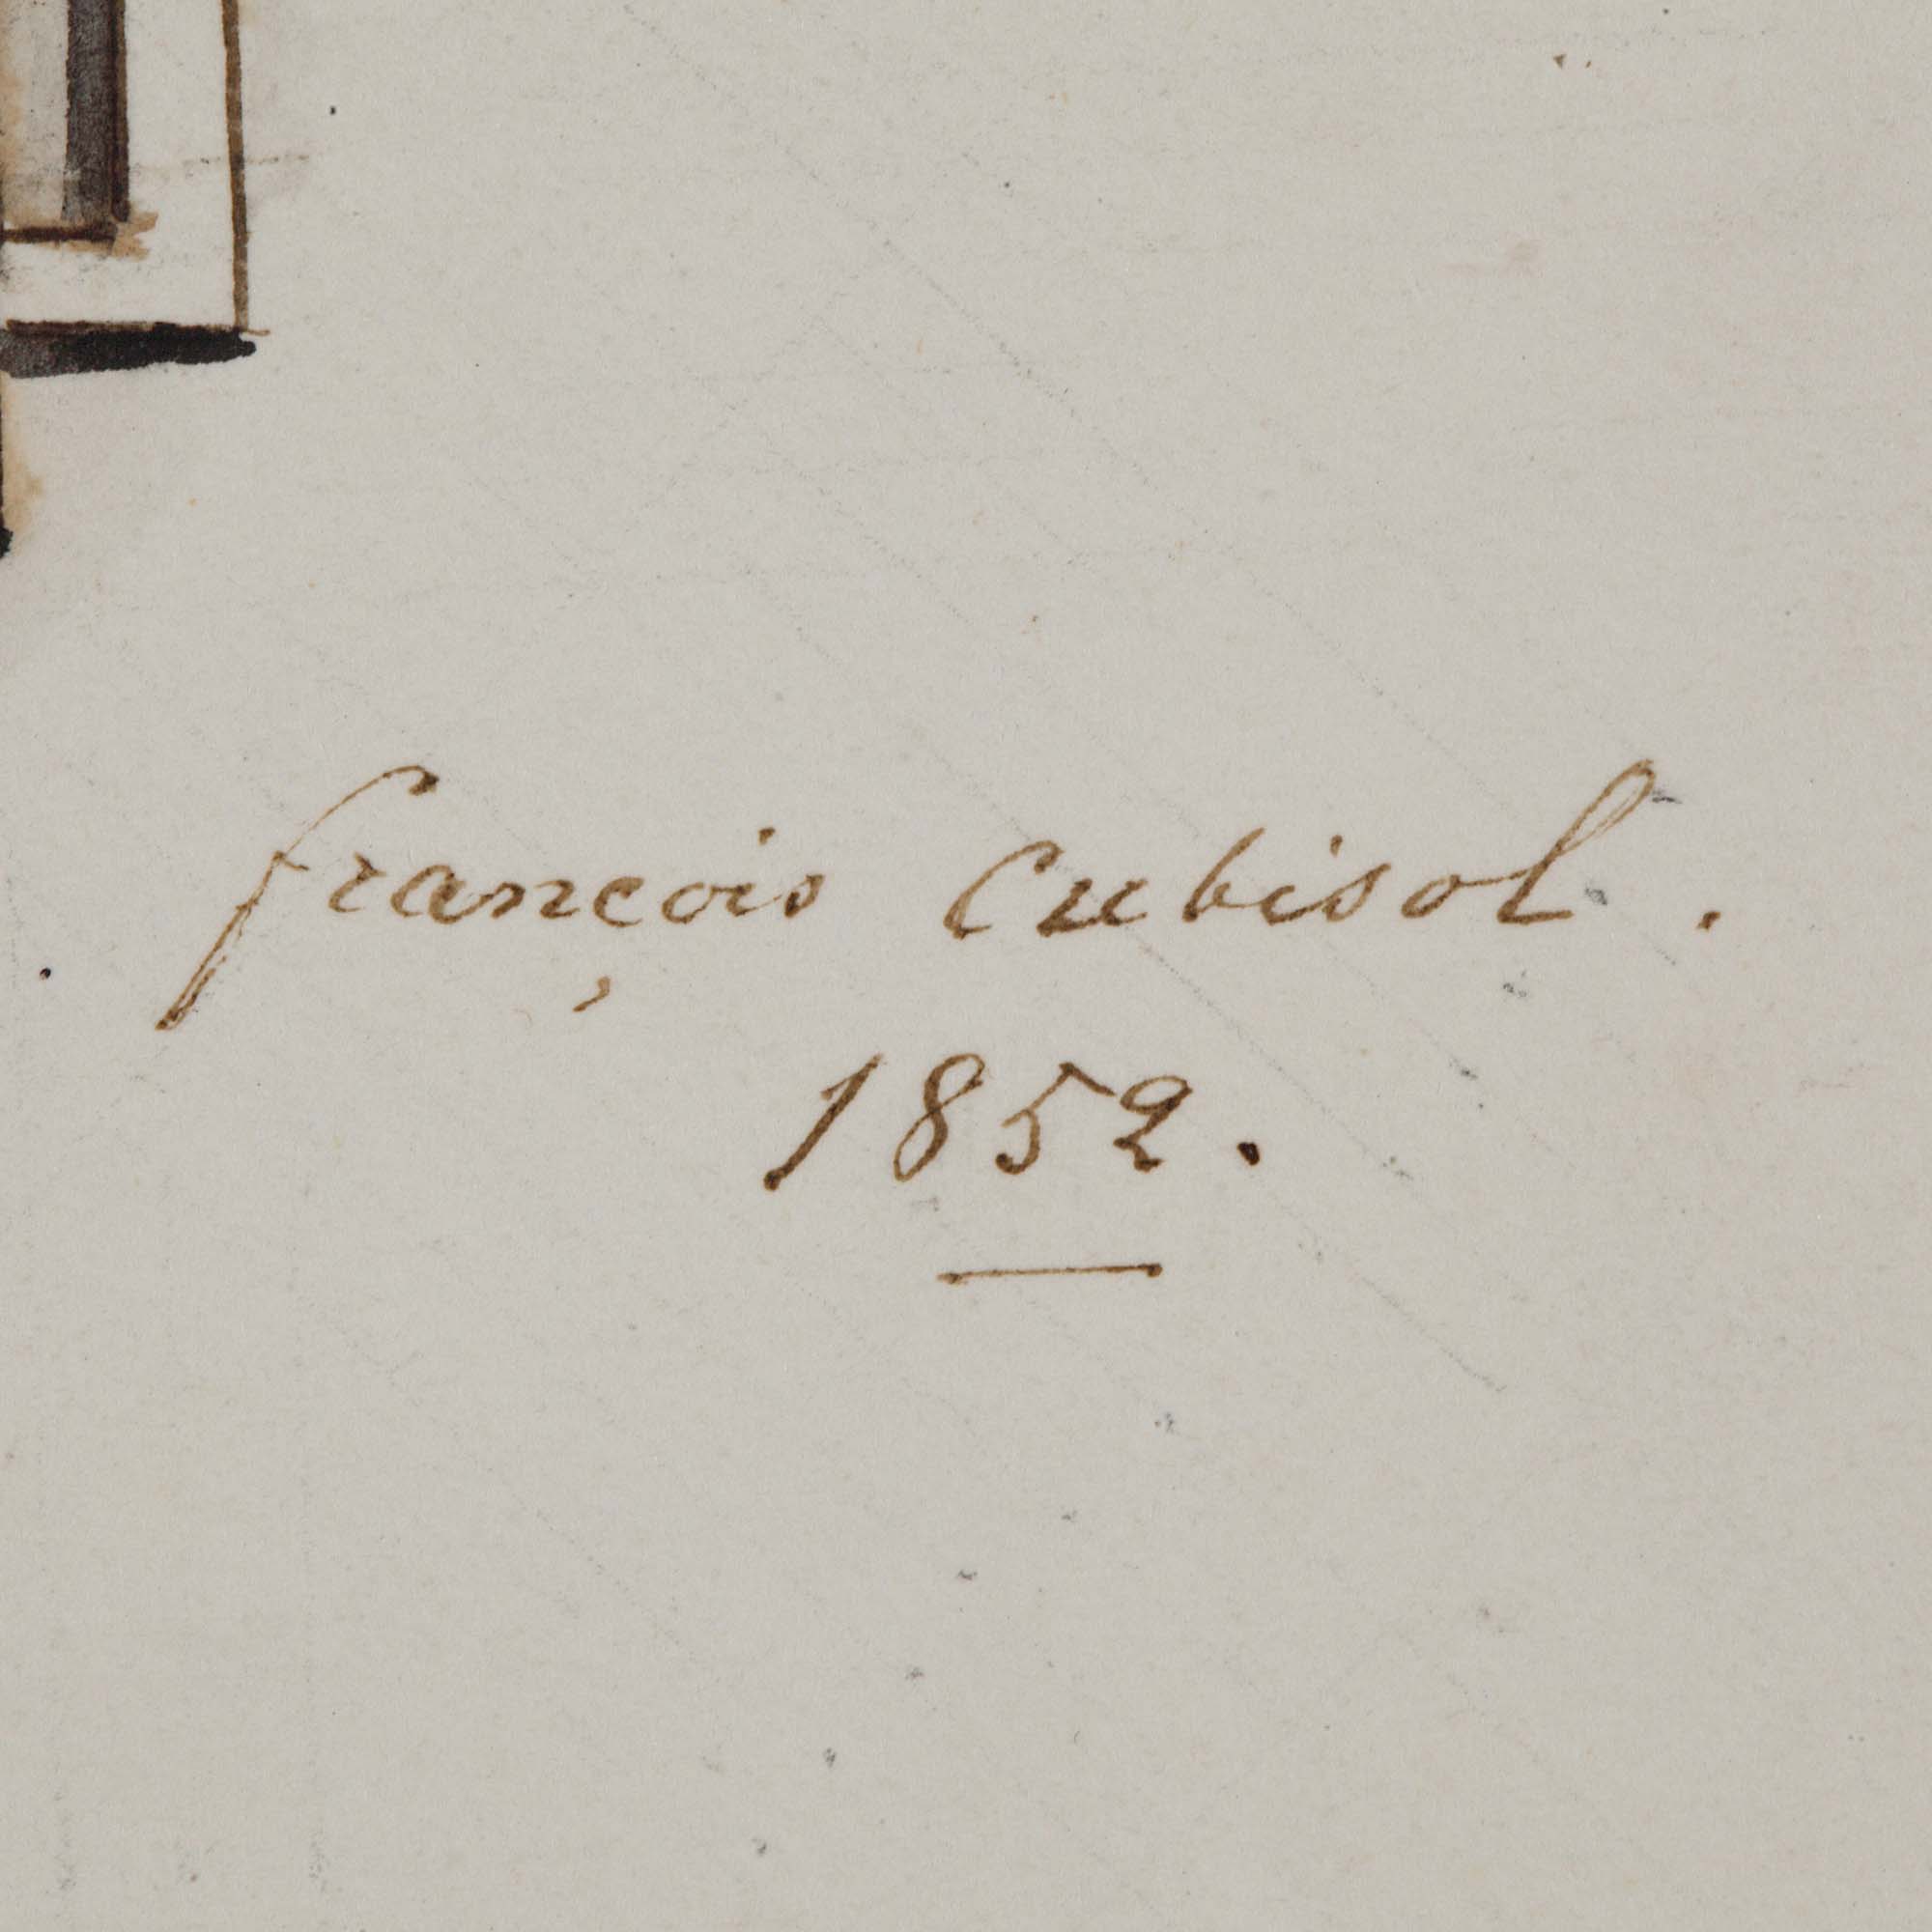 françois Cubisol .
1852.